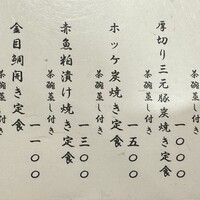 厚切り三元豚炭焼き定食 一〇〇〇
茶碗蒸し付き
ホッケ炭焼き定食 一五〇〇
茶碗蒸し付き
赤魚粕漬け焼き定食 一三〇〇
茶碗蒸し付き
金目鯛開き定食 一一〇〇